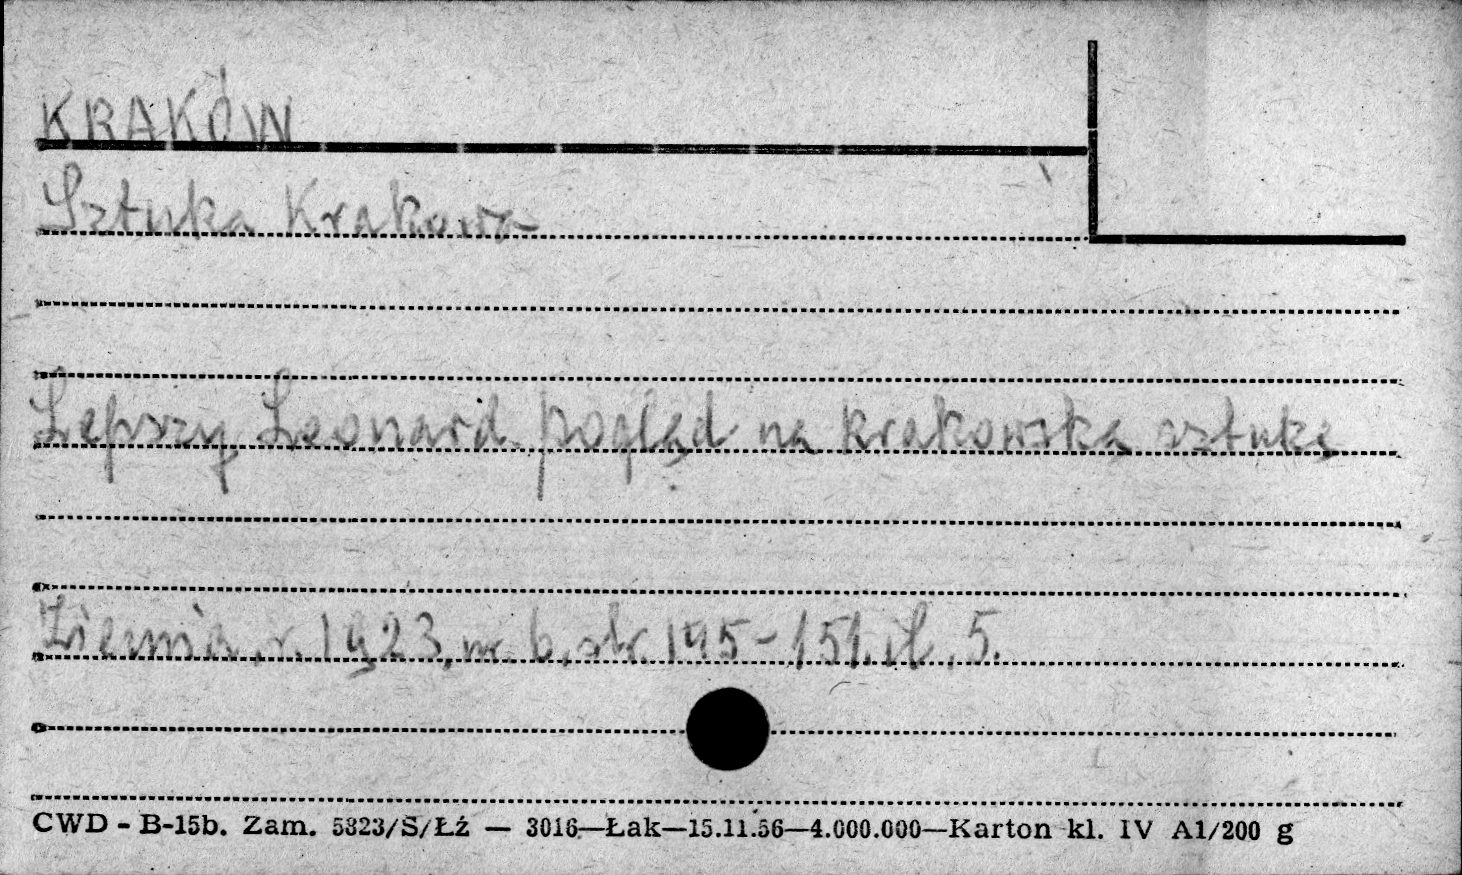 KRAKÓW
Sztuka Krakowa
Lepszy Leonard. Pogląd na krakowską sztukę
Ziemia, r. 1923, nr. 6, str. 145-151. il. 5.
CWD - B-15b. Zam. 5323/S/Łź — 3016—Łak—15.11.56—4.000.000—Karton kl. IV A1/200 g